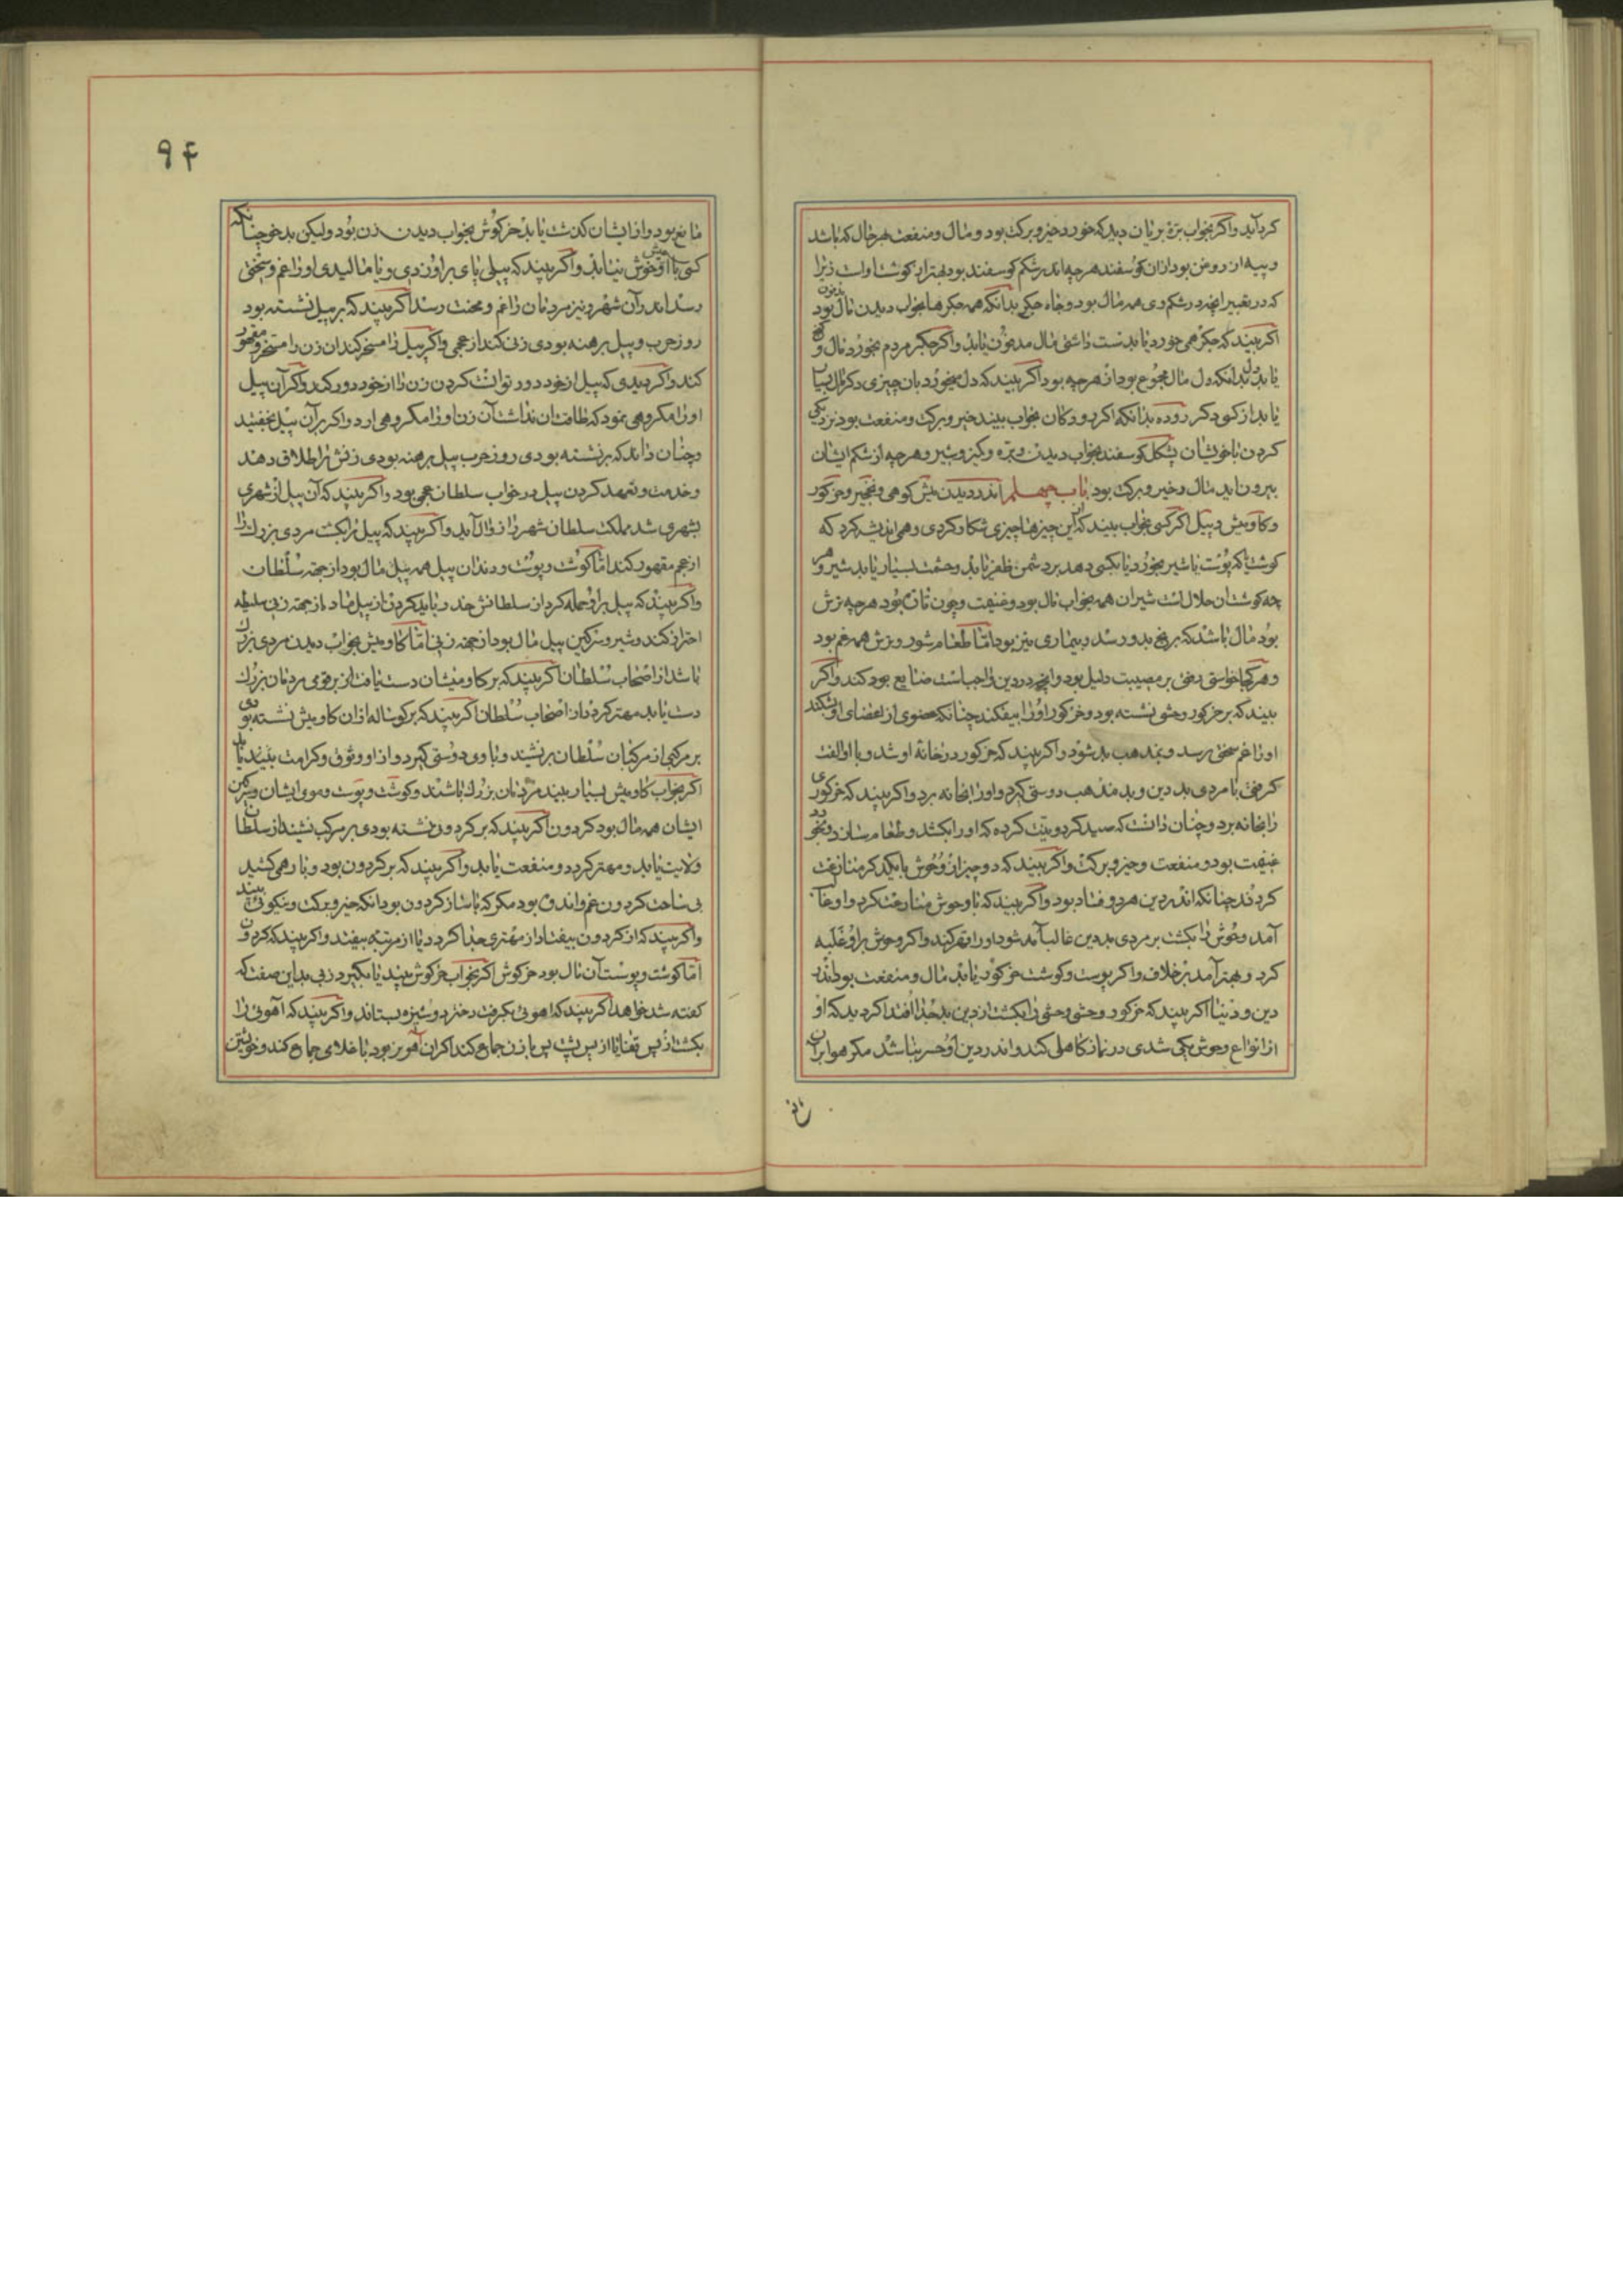 کرد آید واکر بخواب بزه بریان دید که خورد خیر و برکت بود و مال و منفعت هر حال که باشد
و پیه از روغن بود از ان کوسفند هر چه اندر شکم کوسفند بود بهتر از کوشت اوست زیرا
که در تعبیر انچه در شکم وی همه مال بود و جاه جکر بدانکه همه جکرها بخواب دیدن مال بود
اکر بیند که جکر همی خورد یا بدست داشتی مال مدفون یابد واکر جکر مردم بخورد مال و
یابد دل بدانکه دل مال مجموع بود از هر چه بود اکر بیند که دل میخورد بان چیزی دکر مال
یابد از کسوی دکر روده بدانکه اکر رودکان بخواب بیند خیر و برکت و منفعت بود نزدیکی
کردن با خویشان پشکل کوسفند بخواب دیدن و بره و کیز و شیر و هر چه از شکم ایشان
بیرون اید مال و خیر و برکت بود باب چهلم اندر دیدن میش کوهی و نخجیر و خرکور
و کاومیش و پیل اکر کسی بخواب بیند که از این چیزها چیزی شکار کردی و همی اندیشه کرد که
کوشت یا که پوست یا شیر بخورد یا بکسی دهد بر دشمن ظفر یابد و حشمت بسیار یابد شیر
چه کوشتان حلال است شیران همه بخواب مال بود و غنیمت و چون نان بود هر چه ترش
بود مال باشد که برنج بدو رسد و بیماری نیز بود اما طعام شور و ترش همه غم بود
و هر کجا خواستی دلیل بود بر مصیبت و انچه در دین واجبست ضایع بود کند واکر
بیند که بر خرکور وحشی نشسته بود و خرکور او را بیفکند چنانکه عضوی از اعضای او بشکند
او را غم سختی رسد و بمذهب بد شود واکر بیند که خرکور در خانه او شد و با او الفت
کرفت با مردی بد دین و بد مذهب دوستی کیرد و او را بخانه برد واکر بیند که خرکوری
را بخانه برد و چنان دانست که صید کرد و نیت کرده که او را بکشد و طعام سازد و بخورد
غنیمت بود و منفعت و خیر و برکت واکر بیند که دو چیز از وحوش با یکدیکر منازعت
کردند چنانکه اندر دین هر دو فساد بود واکر بیند که با وحوش منازعت کرد و او غالب
آمد و وحوش را بکشت بر مردی بد دین غالب آمد شود و او را قهر کند واکر وحوش بر او غلبه
کرد و بهتر آمد بر خلاف واکر پوست و کوشت خرکور یابد مال و منفعت بود اندر
دین و دنیا اکر بیند که خرکور وحشی وحشی را بکشت از دین بد جدا افتد اکر دید که او
از انواع وحوش یکی شدی در نماز کاهلی کند و اندر دین او حسر نباشد مکر هوا بران
۹۴
مانع بود و از ایشان کذشت یابد خرکوش بخواب دیدن زن بود ولیکن بدخو چنانکه
کسی با او خوش نیابد واکر بیند که پیلی پای بر او زدی و یا مالیدی او را غم و سختی
رسد اندر آن شهر و نیز مردمان را غم و محنت رسد اکر بیند که بر پیل نشسته بود
روز حرب و پیل برهنه بودی زنی کند از عجمی واکر پیل را مسخر کند ان زن را مسخر و مقهور
کند واکر دیدی که پیل از خود دور توانست کردن زن را از خود دور کند واکر آن پیل
او را مکروهی نمود که طاقت ان نداشت آن زن او را مکروهی ارد واکر بر آن پیل بخفتید
و چنان داند که برنشسته بودی روز حرب پیل برهنه بودی زنش را طلاق دهد
و خدمت و تعهد کردن پیل در خواب سلطان عجمی بود واکر بیند که آن پیل از شهری
بشهری شد مملکت سلطان شهر را زوال آید واکر بیند که پیل را بکشت مردی بزرک را
از عجم مقهور کند اما کوشت و پوست و دندان پیل همه پیل مال بود از جهت سلطان
واکر بیند که پیل بر او حمله کرد از سلطانش حذر باید کردن از پیل ماده از جهت زنی سلیطه
احتراز کند و شیر و سرکین پیل مال بود از جهت زنی اما کاومیش بخواب دیدن مردی بزرک
باشد از اصحاب سلطان اکر بیند که بر کاومیشان دست یافت او بر قومی مردمان بزرک
دست یابد و مهتر کردد از اصحاب سلطان اکر بیند که بر کوساله ازان کاومیش نشسته بودی
بر مرکبی از مرکبان سلطان برنشیند و با وی دوستی کیرد و از او وثوق و کرامت بیند یابد
اکر بخواب کاومیش بسیار بیند مردمان بزرک باشند و کوشت و پوست و موی ایشان و سرکین
ایشان همه مال بود کردون اکر بیند که بر کردون نشسته بودی بر مرکب نشیند از سلطان
ولایت یابد و مهتر کردد و منفعت یابد واکر بیند که بر کردون بود و بار همی کشید
بی ساخت کردون غم و اندوه بود مکر که با ساز کردون بود انکه خیر و برکت و نیکوئی بیند
واکر بیند که از کردون بیفتاد از مهتری جدا کردد یا از مرتبه بیفتد واکر بیند که کردون
اما کوشت و پوست آن مال بود خرکوش اکر بخواب خرکوش بیند یا بکیرد زنی بداین صفت که
کفته شد خواهد اکر بیند که اهوئی بکرفت دختر دوشیزه بستاند واکر بیند که آهوئی را
بکشت از پس قفا یا از پس پشت پس با زن جماع کند اکر ان آهو نر بود با غلامی جماع کند و خویشتن